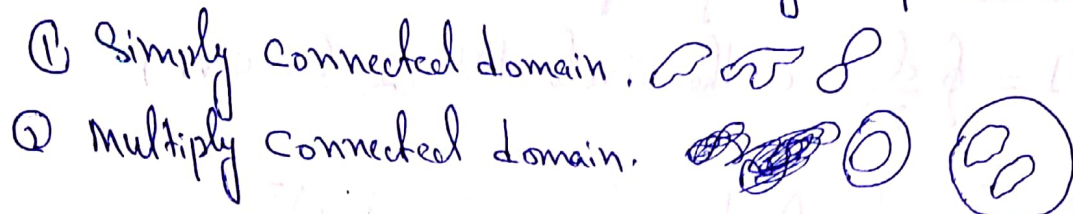 ① Simply connected domain.
② Multiply connected domain.